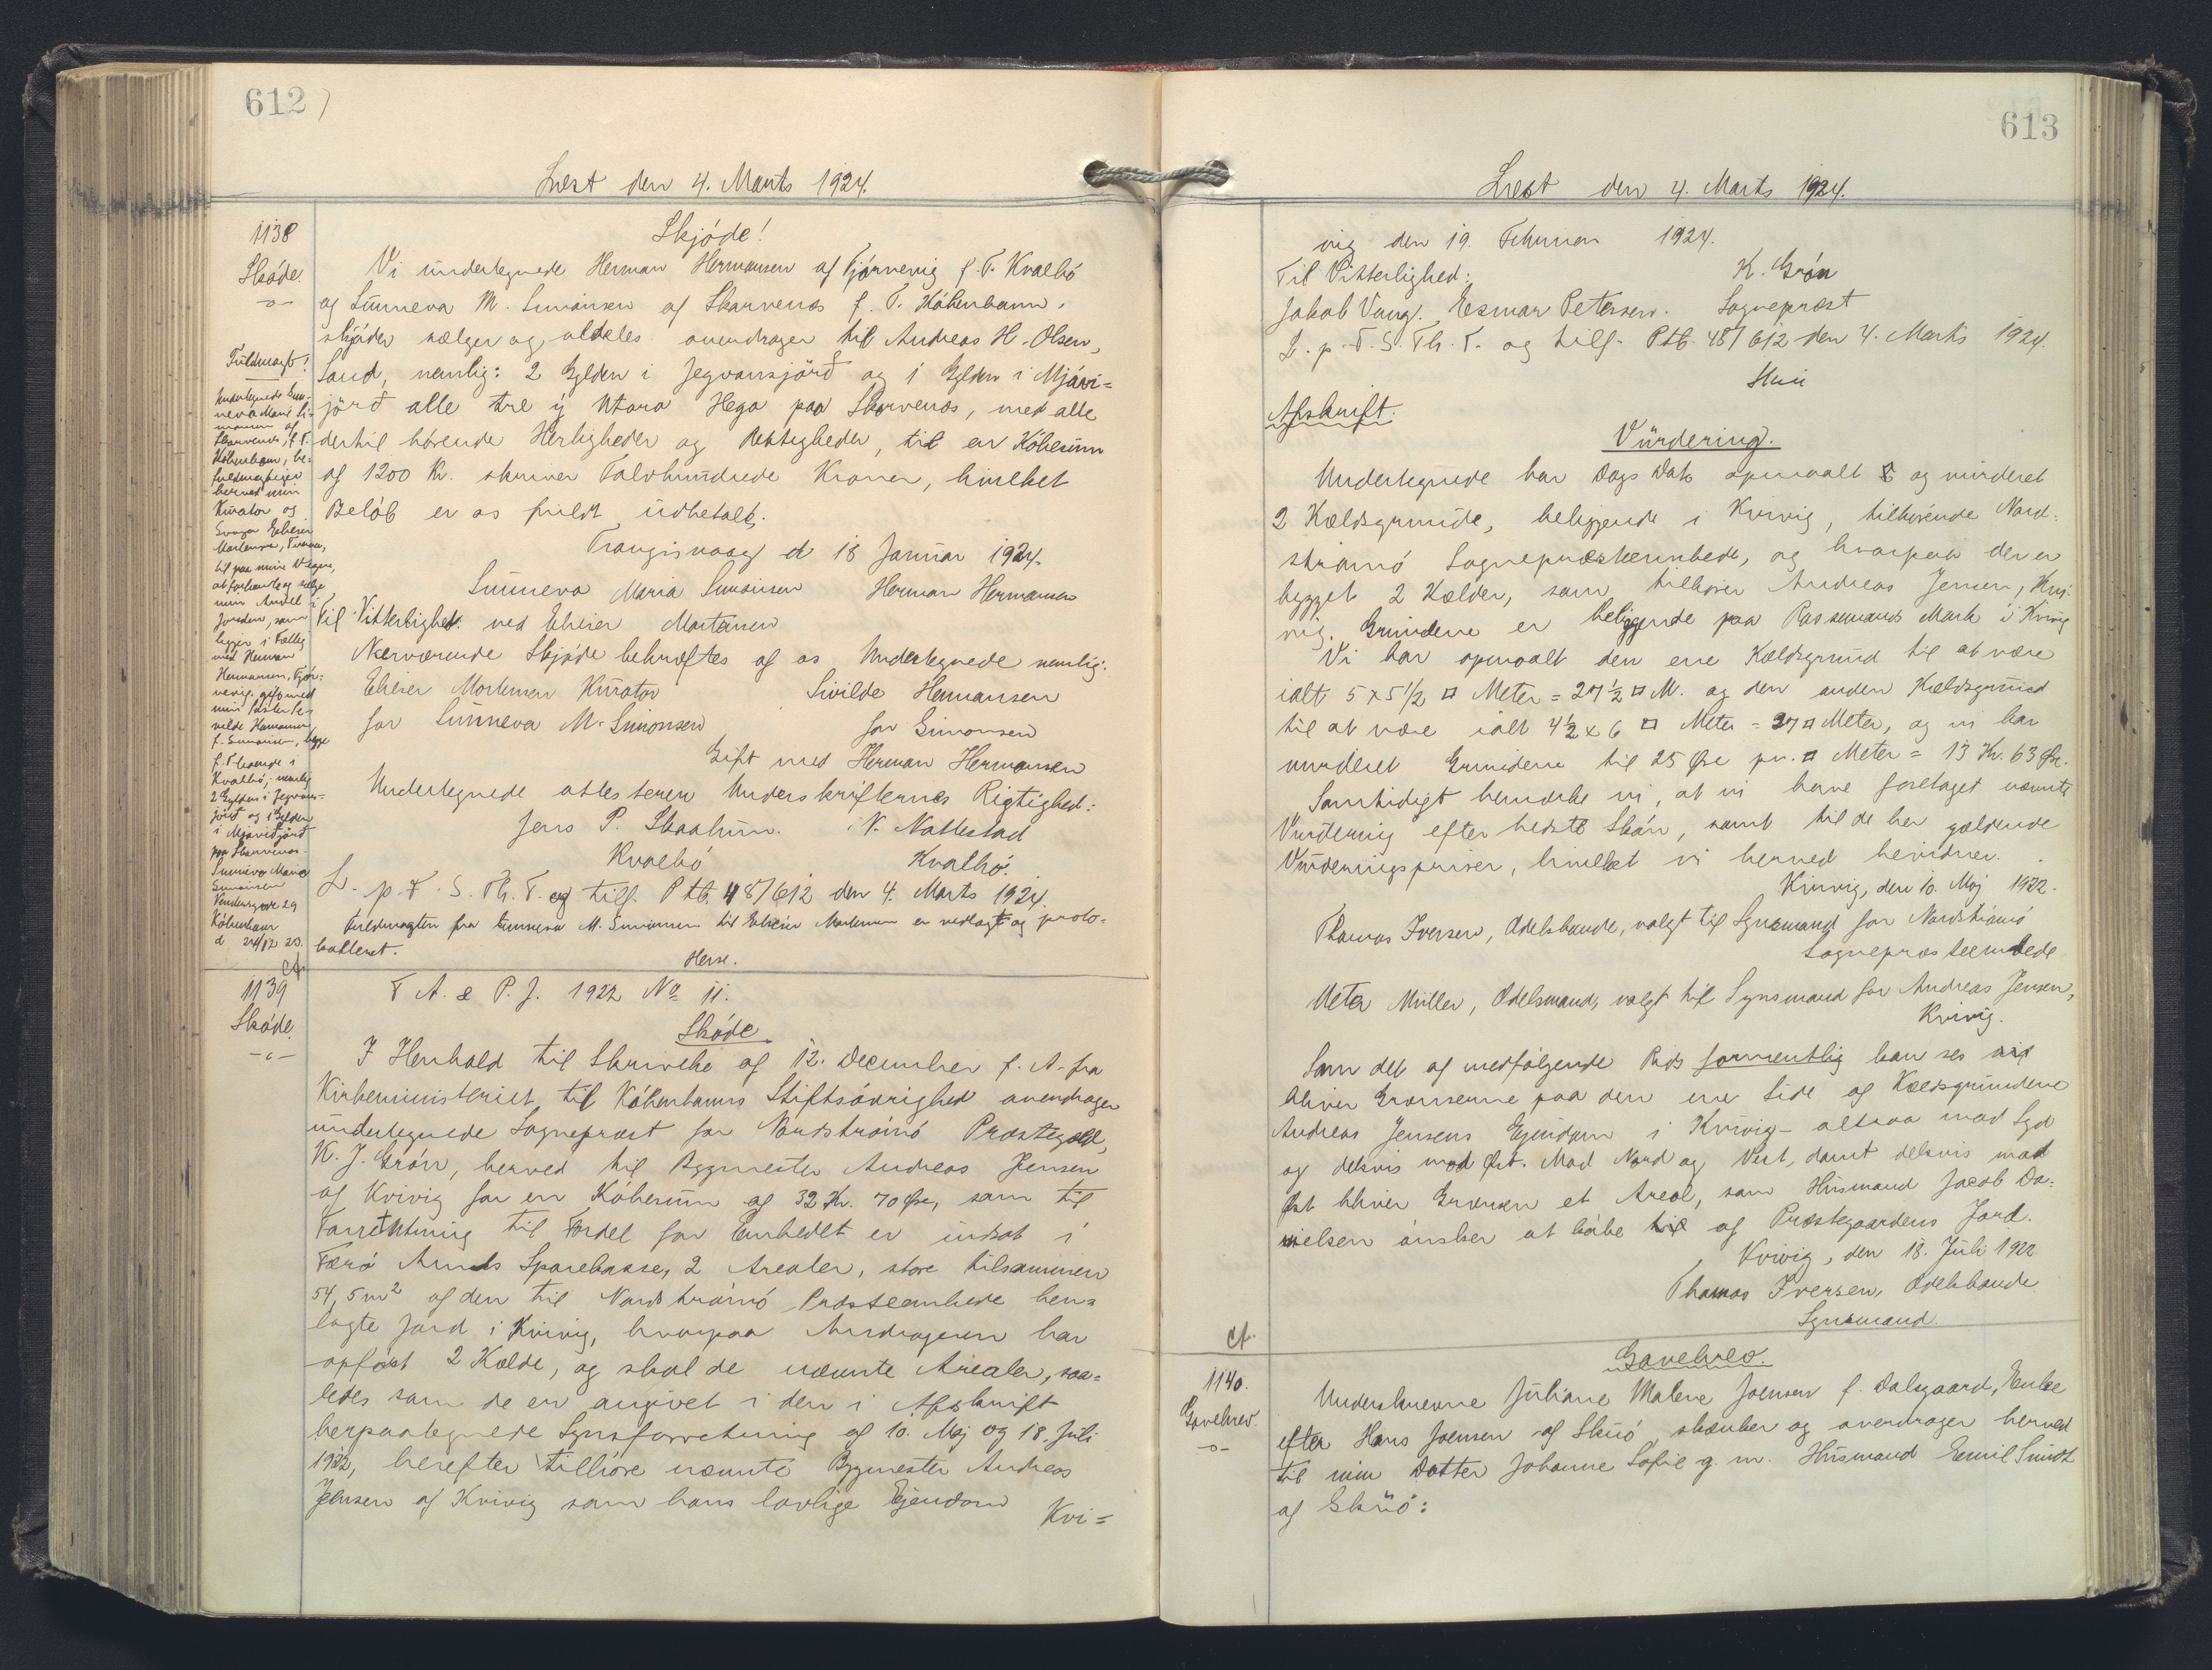 612
Læst den 4. Marts 1924.
1138
Skøde.
Skjøde!
Vi undertegnede Herman Hermansen af Fjörnevig f. T. Kvalbö
og Sunneva M. Simonsen af Skarvenæs f. T. København,
skjøder sælger og aldeles overdrager til Andreas H. Olsen,
Sand, nemlig: 2 Gylden i Jegvansjörð og 1 Gylden i Mjávi=
jörð alle tre ý Utara Hega paa Skarvenæs, med alle
dertil hørende Herligheder og Rettigheder, til en Købesum
af 1200 Kr. skriver Tolvhundrede Kroner, hvilket
Beløb er os fuldt udbetalt.
Trangisvaag d 18 Januar 1924.
Sunneva Maria Simonsen Herman Hermansen
Til Vitterlighed. ved Elieser Mortensen
Nærværende Skjøde bekræftes af os Undertegnede nemlig:
Elieser Mortensen Kurator Sivilde Hermansen
for Sunneva M. Simonsen før Simonsen
Gift med Herman Hermansen
Undertegnede attesterer Underskrifternes Rigtighed:
Jens P. Skaalum. N. Nattestad
Kvalbö Kvalbö.
L. p. F. S. Th. T. og tilf. Ptb. 48/612 den 4. Marts 1924.
Fuldmagten fra Sunneva M. Simonsen til Elieser Mortensen er vedlagt og proto=
kolleret.
Fuldmagt!
Undertegnede Sun-
neva Marie Si-
monsen af
Skarvenæs, f. T.
København, be=
fuldmægtiger
herved min
Kurator og
Svoger Elieser
Mortensen,
til paa mine Vegne,
at forhandle og sælge
min Andel i
Jorden, som
ligger i Fælleg
med Herman
Hermansen, Fjör-
nevig, gift med
min Søster Si-
vilde Hermansen,
f. Simonsen, begge
f. T. boende i
Kvalbö, nemlig
2 Gylden i Jegvans-
jörð og 1 Gylden
i Mjávijørð
paa Skarvenæs.
Sunneva Maria
Simonsen
Vendersgade 29
København
d 24/12 23.
1139
Skøde.
F A. & P. J. 1922 No 11.
Skøde.
I Henhold til Skrivelse af 12. December f. A. fra
Kirkeministeriet til Københavns Stiftsøvrighed overdrager
undertegnede Sognepræst for Nordstrømø Præstegæld,
K. J. Grøn, herved til Bygmester Andreas Jensen
af Kvivig for en Købesum af 32 Kr. 70 Øre, som til
Forrentning til Fordel for Embedet er indsat i
Færø Amts Sparekasse, 2 Arealer, store tilsammen
54,5 m² af den til Nordstrømø Præsteembede hen=
lagte Jord i Kvivig, hvorpaa Andrageren har
opført 2 Kælde, og skal de nævnte Arealer, saa=
ledes som de er angivet i den i Afskrift
herpaategnede Synsforretning af 10. Maj og 18. Juli
1922, herefter tilhøre nævnte Bygmester Andreas
Jensen af Kvivig som hans lovlige Ejendom
Kvi=
613
Læst den 4. Marts 1924.
vig den 19. Februar 1924.
Til Vitterlighed: K. Grøn
Jakob Vang. Esmar Petersen. Sognepræst
L. p. F. S. Th. T. og tilf. Ptb. 48/612 den 4. Marts 1924.
Afskrift.
Vurdering.
Undertegnede har Dags Dato opmaalt og vurderet
2 Kældsgrunde, beliggende i Kvivig, tilhørende Nord=
strømø Sognepræsteembede, og hvorpaa der er
bygget 2 Kælder, som tilhører Andreas Jensen, Kvi=
vig. Grundene er beliggende paa Rassemands Mark i Kvivig
Vi har opmaalt den ene Kældsgrund til at være
ialt 5 x 5 1/2 □ Meter = 27 1/2 □ M. og den anden Kældsgrund
til at være ialt 4 1/2 x 6 □ Meter = 27 □ Meter, og vi har
vurderet Grundene til 25 Øre pr. □ Meter = 13 Kr. 63 Øre.
Samtidigt bemærke vi, at vi have foretaget nævnte
Vurdering efter bedste Skøn, samt til de her gældende
Vurderingspriser, hvilket vi herved bevidner.
Kvivig, den 10. Maj 1922.
Thomas Iversen, Odelsbonde, valgt til Synsmand for Nordstrømø
Sognepræsteembede
Meta Müller, Odelsmand, valgt til Synsmand for Andreas Jensen,
Kvivig.
Som det af medfølgende Rids formentlig kan ses
bliver Grænserne paa den ene Side af Kældsgrundene
Andreas Jensens Ejendom i Kvivig - altsaa mod Syd
og delvis mod Øst. Mod Nord og Vest, samt delvis mod
Øst bliver Grænsen et Areal, som Husmand Jacob Da=
nielsen ønsker at købe til af Præstegaardens Jord.
Kvivig, den 18. Juli 1922
Thomas Iversen, Odelsbonde
Synsmand.
1140.
Gavebrev.
Gavebrev.
Underskrevne Juliane Malene Joensen f. Dalsgaard, Enke
efter Hans Joensen af Skuø skænker og overdrager herved
til min Datter Johanne Sofie g. m. Husmand Emil Smidt
af Skuø: